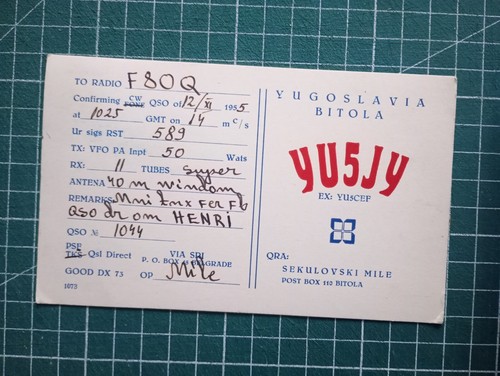 TO RADIO F8OQ
Confirming CW FONE QSO of 12/XI 1955
at 1025 GMT on 14 mc/s
Ur sigs RST 589
TX: VFO PA Inpt 50 Wats
RX: 11 TUBES super
ANTENA 40 m Windom
REMARKS Mni tnx FER FB
QSO dr om HENRI
QSO № 1044
PSE
TKS Qsl Direct VIA SRJ
P. O. BOX BELGRADE
GOOD DX 73 OP Mile
1073
YUGOSLAVIA
BITOLA
YU5JY
EX: YU5CEF
QRA:
SEKULOVSKI MILE
POST BOX 112 BITOLA